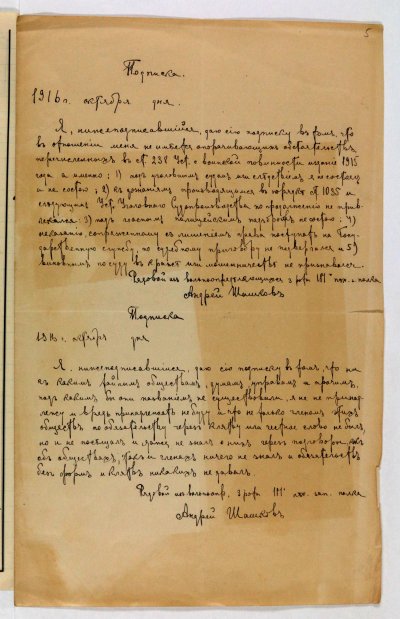 5
Подписка.
1916 г. октября дня.
Я, нижеподписавшийся, даю сію подписку въ томъ, что
въ отношеніи меня не имѣется опорачивающихъ обстоятельствъ,
перечисленныхъ въ ст 238 Уст. о воинской повинности изданіе 1915
года а именно: 1) подъ уголовнымъ судомъ или слѣдствіемъ я не состоялъ
и не состою; 2) къ дознаніямъ производящимся въ порядкѣ ст 1035 и
слѣдующихъ Уст. Уголовнаго Судопроизводства по продолженію не прив-
лекался 3) подъ гласнымъ полицейскимъ надзоромъ не состою; 4)
наказанію, сопряженному съ лишеніемъ права поступать на Госу-
дарственную службу, по судебному приговору не подвергался и 5)
виновнымъ по суду въ кражѣ или мошенничествѣ не признавался.
Рядовой изъ вольноопредѣляющихся 3 роты 181 пѣх. полка
Андрей Шашковъ
Подписка
1916 г. октября дня
Я, нижеподписавшійся, даю сію подписку въ томъ, что ни
къ какимъ тайнымъ обществамъ, думамъ управамъ и прочимъ,
подъ какимъ бы они названіемъ не существовали, я не принад-
лежу и впредь принадлежать не буду и что не только членомъ этихъ
обществъ по обязательству черезъ клятву или честное слово не былъ,
но и не посѣщалъ и даже не зналъ о нихъ черезъ подговоры,
объ обществахъ, членахъ ничего не зналъ и обязательствъ
безъ формъ и клятвъ никакихъ не давалъ.
Рядовой изъ вольноопр. 3 роты 181 пѣх. зап. полка
Андрей Шашковъ